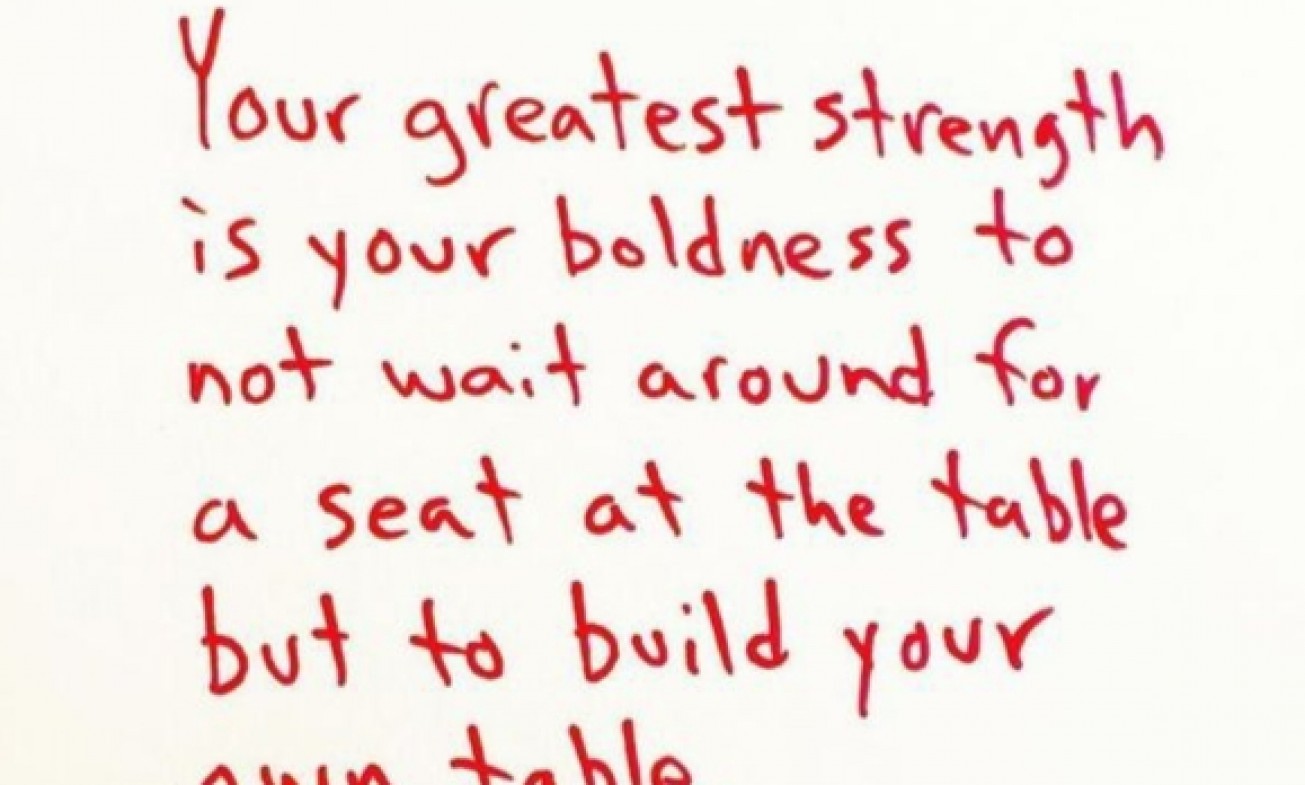 Your greatest strength
is your boldness to
not wait around for
a seat at the table
but to build your
own table